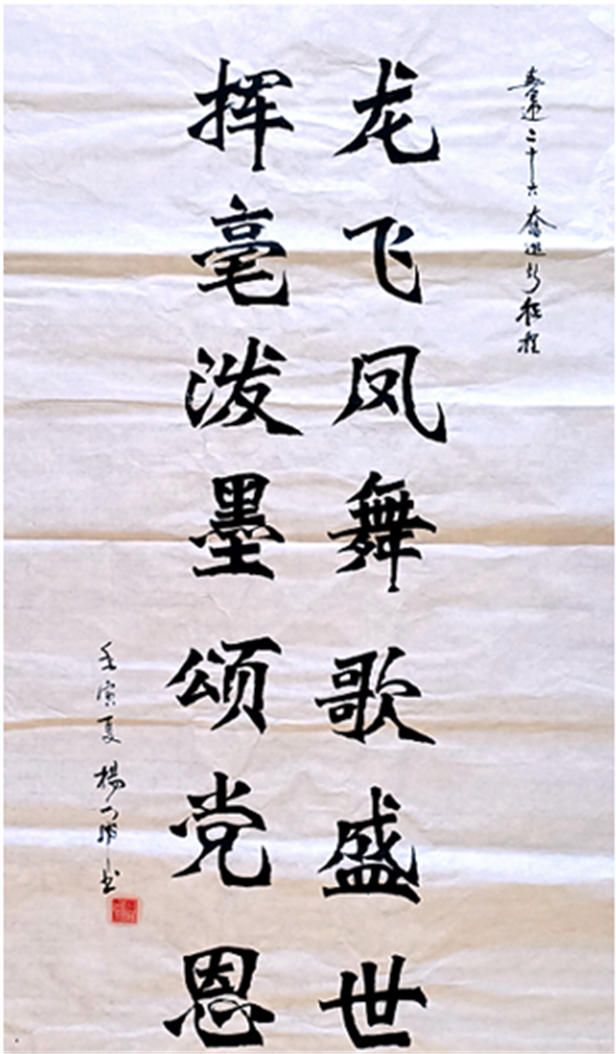 喜迎二十大奋进新征程
龙飞凤舞歌盛世
挥毫泼墨颂党恩
壬寅夏 楊 书